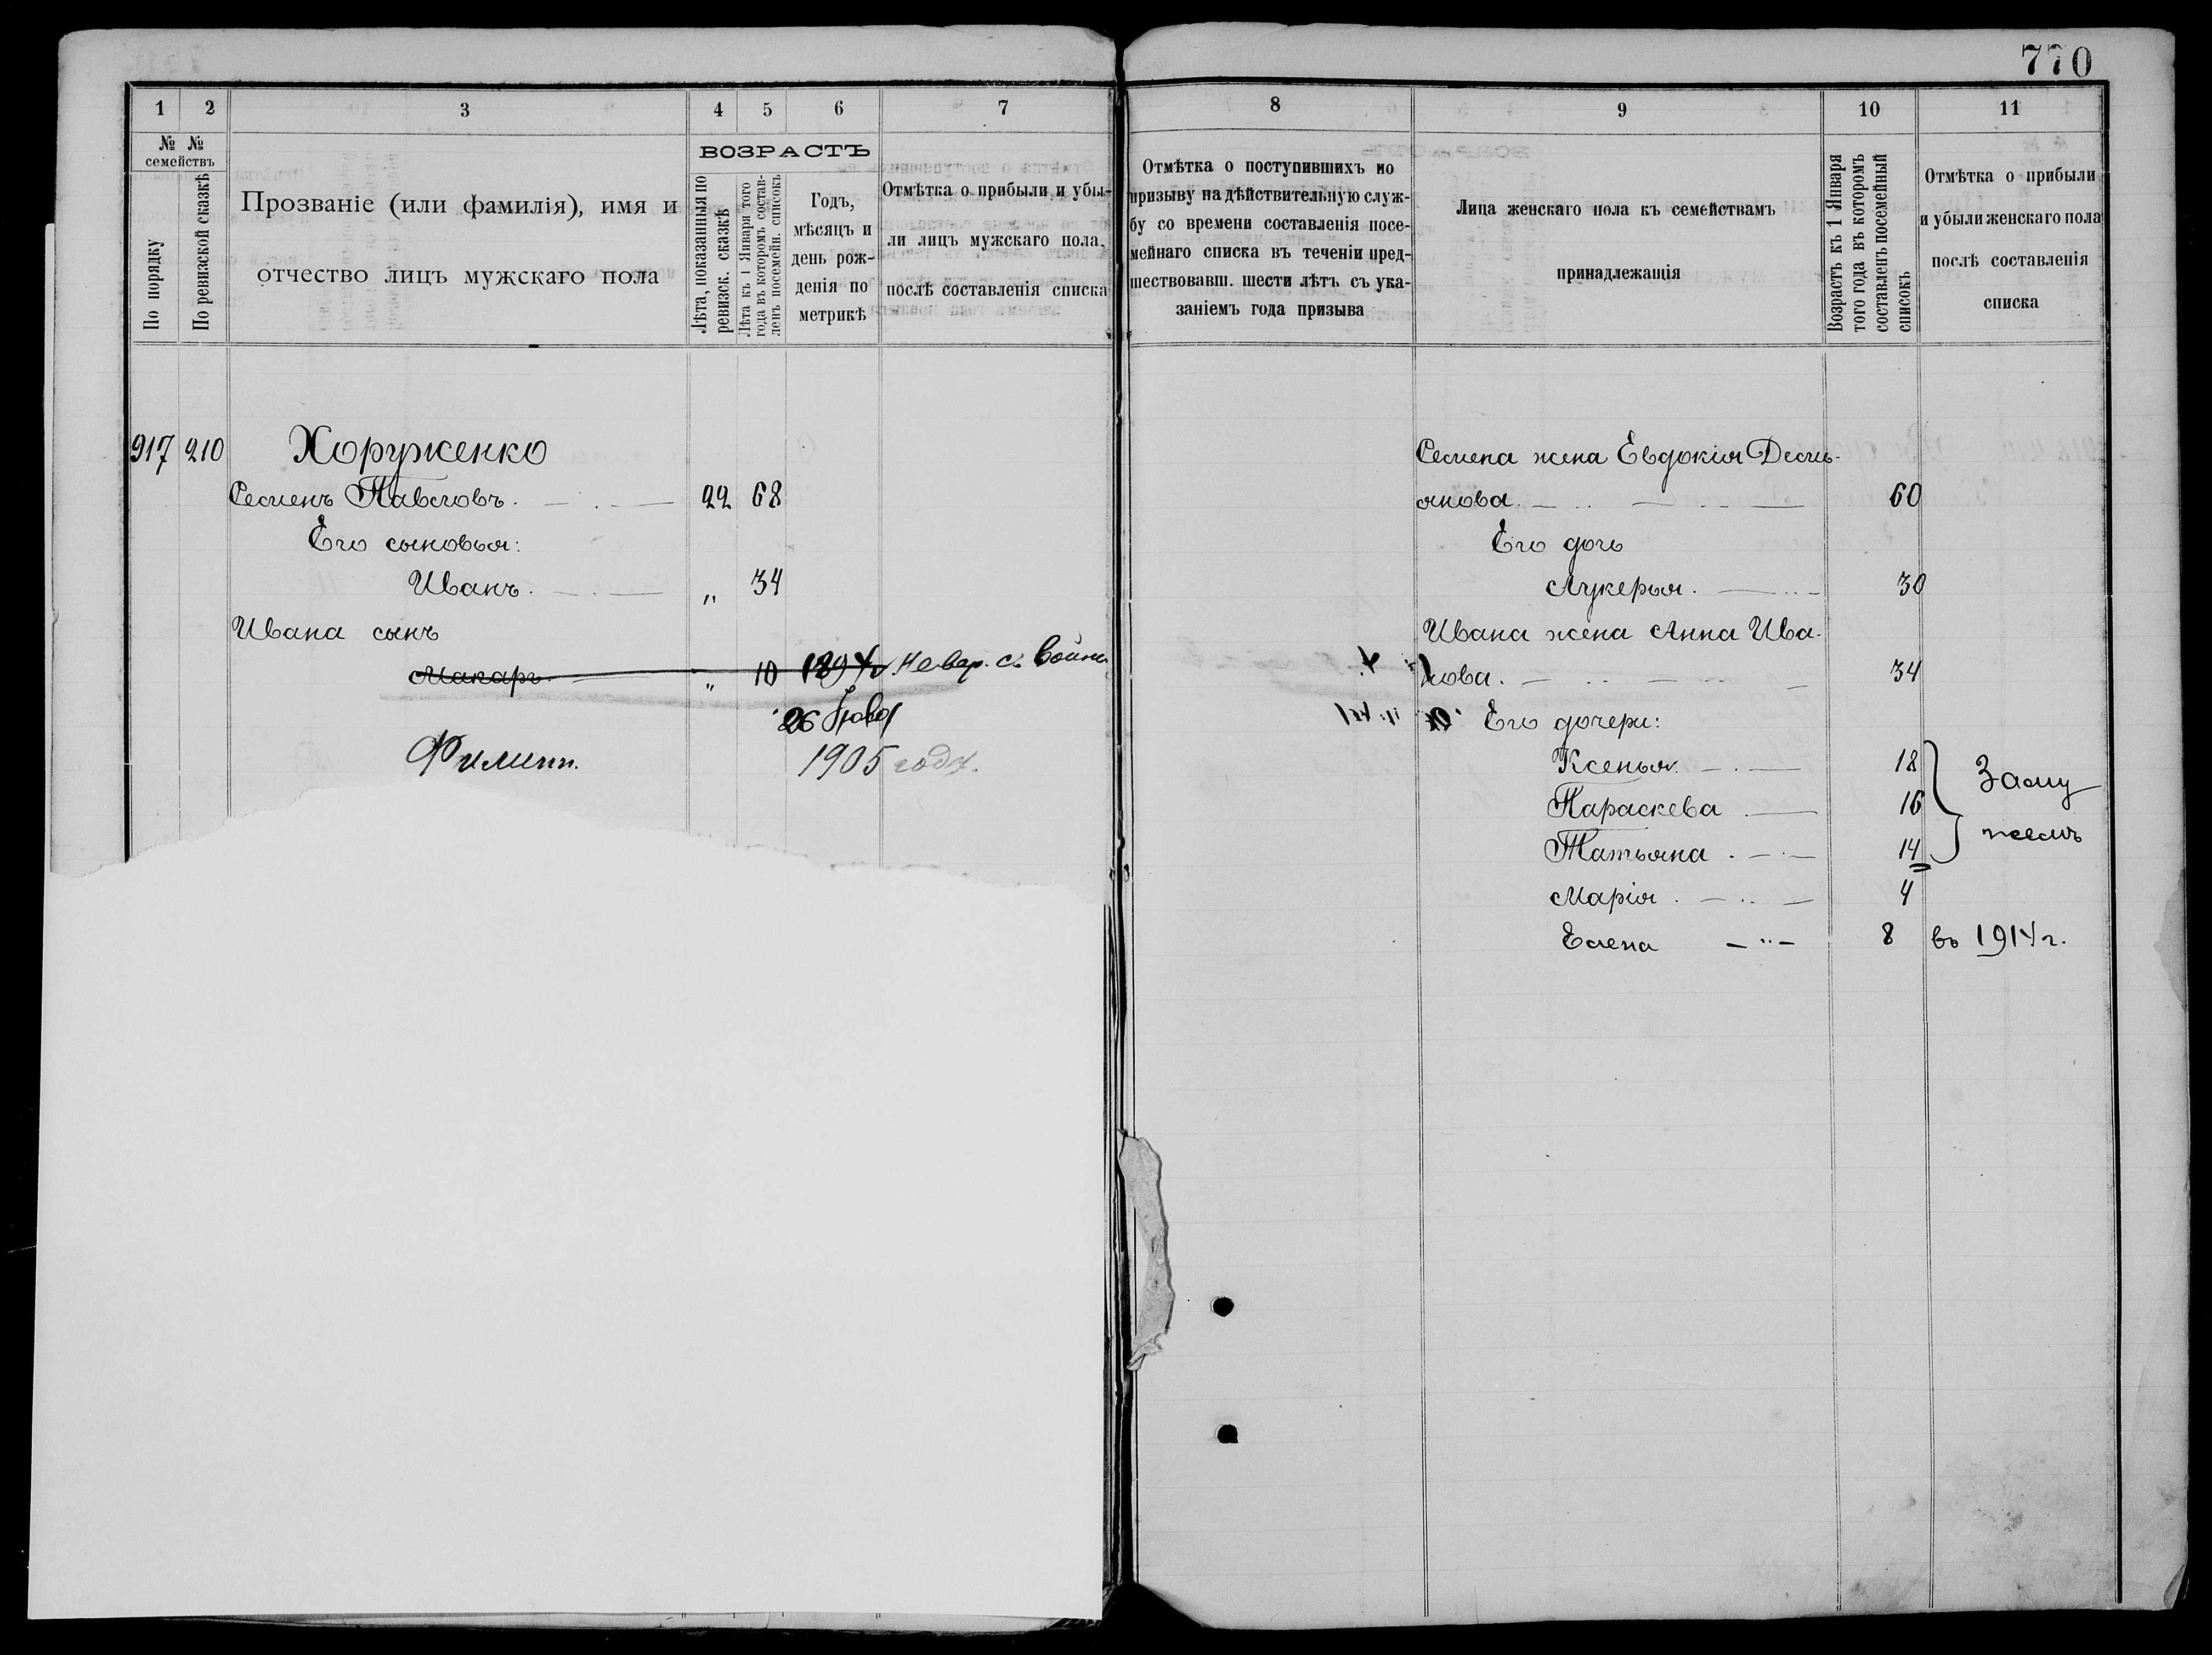 770
1 2 3 4 5 6 7
№ № семействъ
По порядку
По ревизской сказкѣ
Прозваніе (или фамилія), имя и
отчество лицъ мужскаго пола
ВОЗРАСТЪ
Лѣта, показанныя по
ревизск. сказкѣ
Лѣта къ 1 Января того
года въ которомъ состав-
ленъ посемейн. списокъ
Годъ,
мѣсяцъ и
день рож-
денія по
метрикѣ
Отмѣтка о прибыли и убы-
ли лицъ мужскаго пола,
послѣ составленія списка
917 210 Хоруженко
Семенъ Павловъ. 22 68
Его сыновья:
Иванъ. „ 34
Ивана сынъ
Макаръ „ 10 1894 г. Невер. съ войны
26
Филипп. 1905 году.
8 9 10 11
Отмѣтка о поступившихъ по
призыву на дѣйствительную служ-
бу со времени составленія посе-
мейнаго списка въ теченіи пред-
шествовавш. шести лѣтъ съ ука-
заніемъ года призыва
Лица женскаго пола къ семействамъ
принадлежащія
Возрастъ къ 1 Января
того года въ которомъ
составленъ посемейный
списокъ
Отмѣтка о прибыли
и убыли женскаго пола
послѣ составленія
списка
Семена жена Евдокія Демь-
янова. 60
Его дочь
Лукерья. 30
Ивана жена Анна Ива-
нова. 34
Его дочери:
Ксенья. 18 Заму
Параскева 16
жемъ
Татьяна. 14
Марія. 4
Елена 8 въ 1914 г.